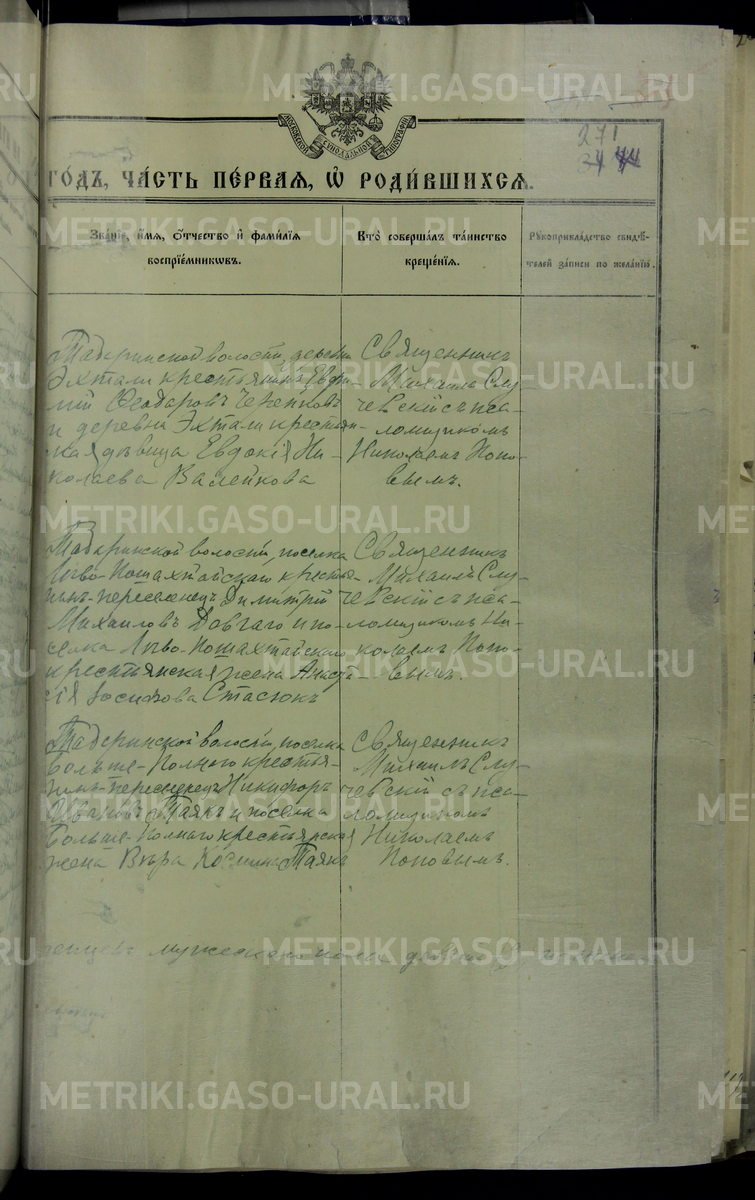 МОСКОВСКОЙ СѴНОДАЛЬНОЙ ТИПОГРАФІИ
271
34 44
ГОДЪ, ЧА́СТЬ ПЕ́РВАЯ, Ѽ РОДИ́ВШИХСЯ.
Зва́нїе, и́мѧ, ѻ҆́тчество и҆ фами́лїѧ воспрїе́мникѡвъ.
Кто̀ соверша́лъ та́инство креще́нїѧ.
Рꙋкоприкла́дство свидѣ́телей за́писи по жела́нїю.
Табаринской волости, деревни
Эхтали крестьянинъ Евфи-
мій Ѳеодоровъ Черепковъ
и деревни Эхтали крестьян-
ская дѣвица Евдокія Ни-
колаева Валейкова
Священникъ
Михаилъ Слу-
чевскій съ пса-
ломщикомъ
Николаемъ Попо-
вымъ.
Табаринской волости, поселка
Лево-Пошахтайскаго крестья-
нинъ-переселенецъ Димитрій
Михаиловъ Довгаго и по-
селка Лево-Пошахтайскаго
крестьянская жена Анаста-
сія Іосифова Стасюкъ
Священникъ
Михаилъ Слу-
чевскій съ пса-
ломщикомъ Ни-
колаемъ Попо-
вымъ.
Табаринской волости, поселка
Больше-Полнаго крестья-
нинъ-переселенецъ Никифоръ
Ивановъ Таякъ и поселка
Больше-Полнаго крестьянская
жена Вѣра Космина Таякъ
Священникъ
Михаилъ Слу-
чевскій съ пса-
ломщикомъ
Николаемъ
Поповымъ.
мужескаго пола
METRIKI.GASO-URAL.RU